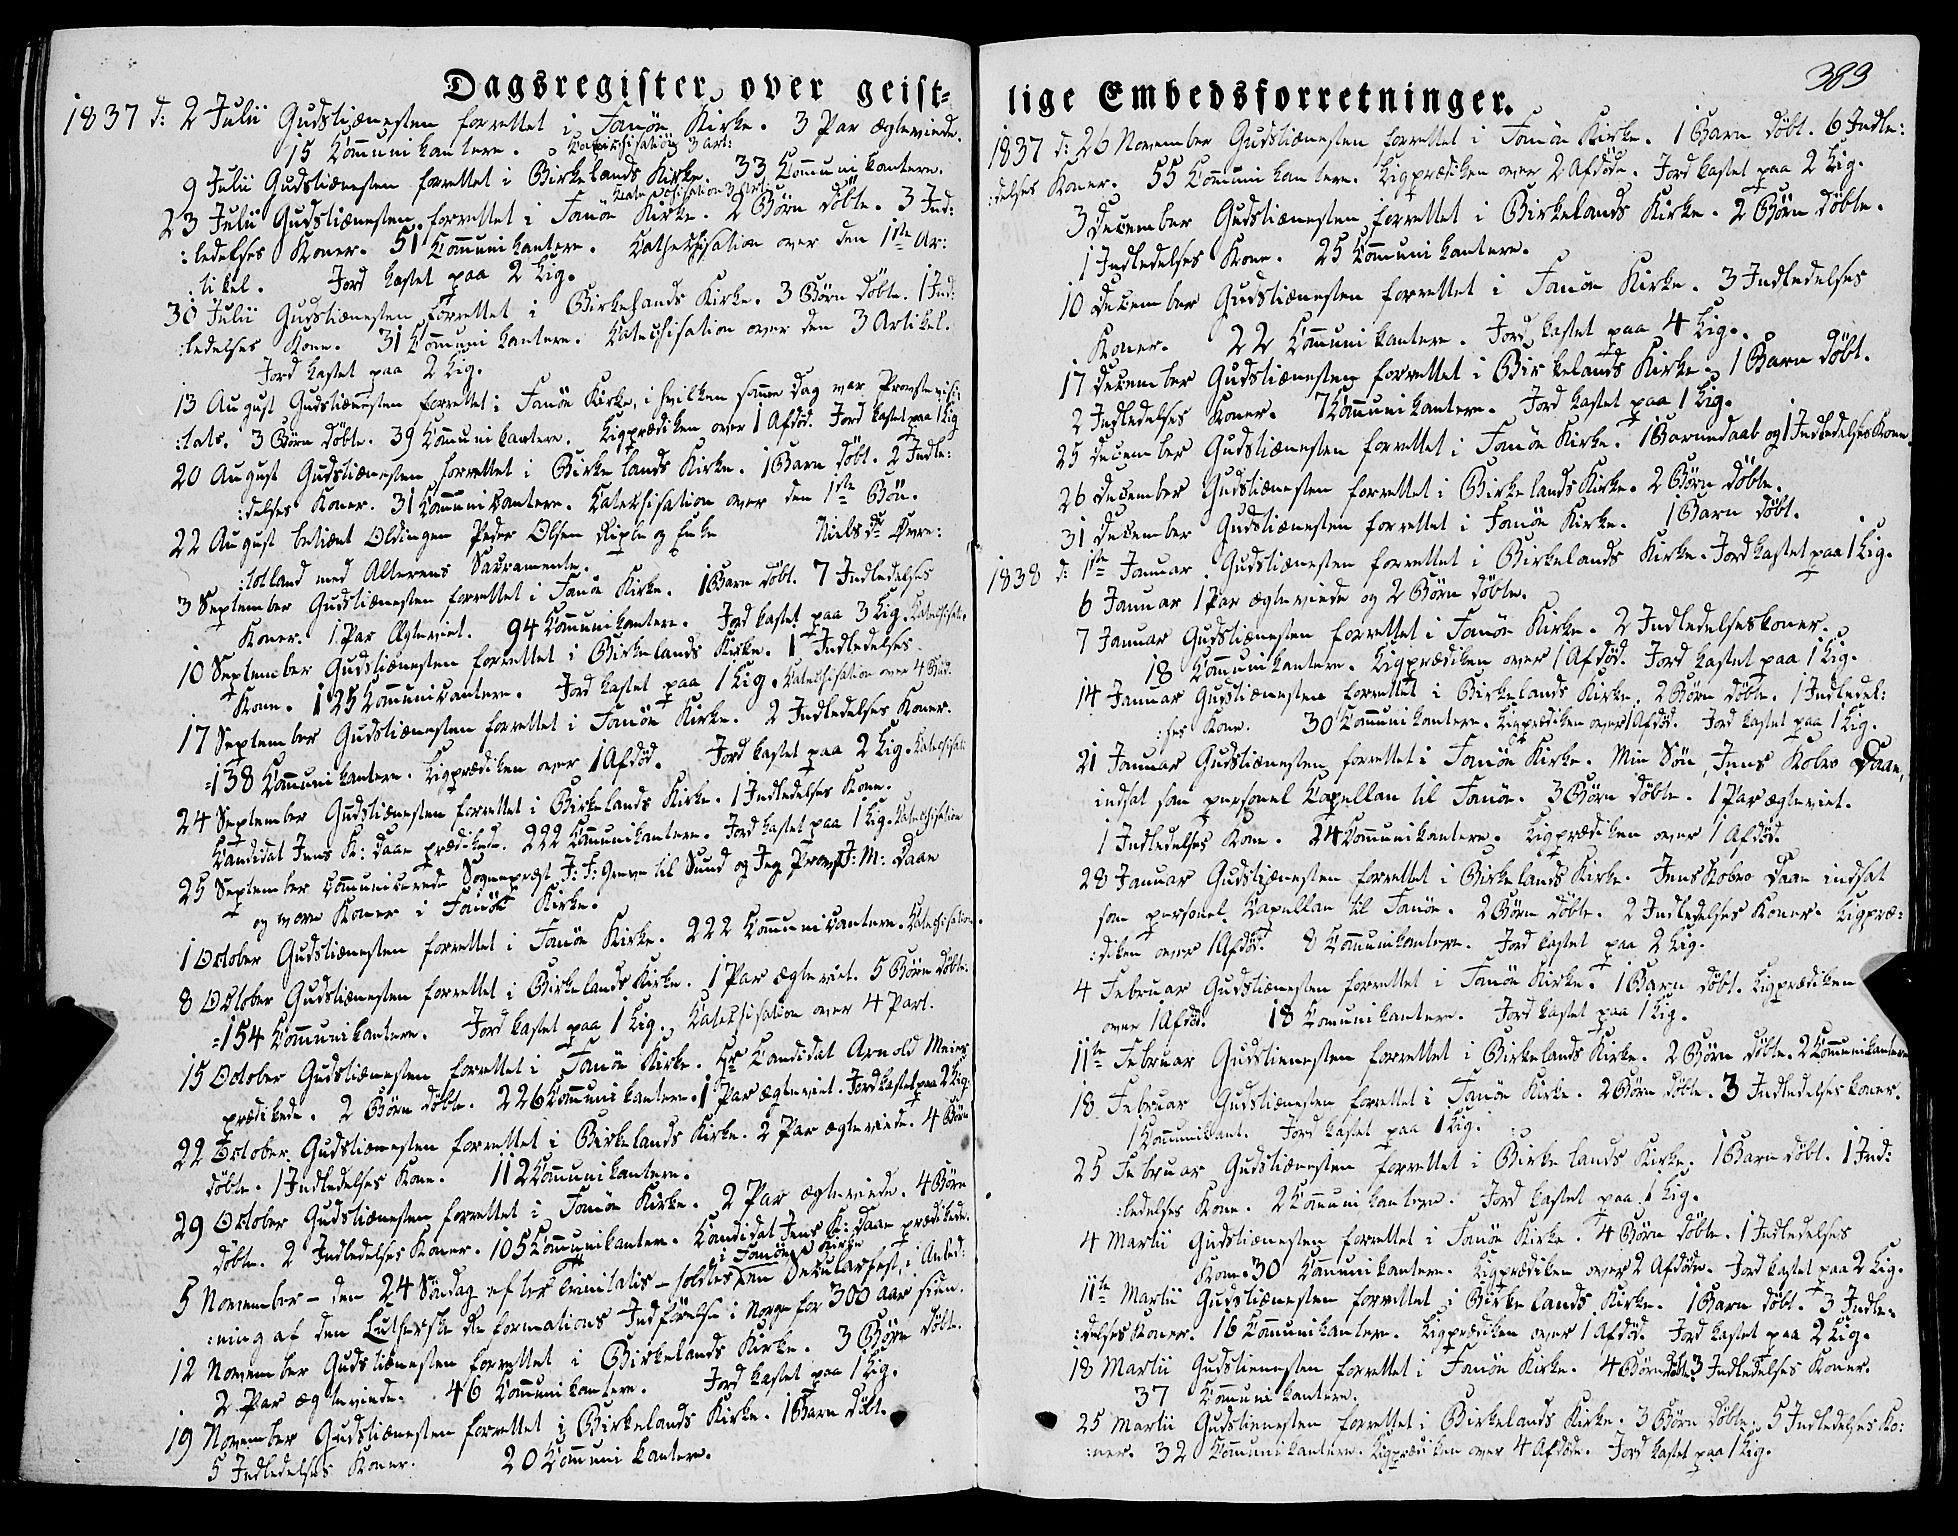 Dagsregister over geist=
1837 d: 2 Julii Gudstiænesten forrettet i Fanöe Kirke. 3 Par ægteviede.
15 Communikantere. Catechisation 3 Art:
9 Julii Gudstiænesten forrettet i Birkelands Kirke. 33 Communikantere.
Catechisation 3 Art:
23 Julii Gudstiænesten forrettet i Fanöe Kirke. 2 Börn döbte. 3 Ind:
:ledelses Koner. 51 Communikantere. Cathechisation over den 1ste Ar:
:tikel. Jord kastet paa 2 Lig.
30 Julii Gudstiænesten forrettet i Birkelands Kirke. 3 Börn döbte. 1 Ind:
:ledelses Kone. 31 Communikantere. Catechisation over den 3 Artikel.
Jord kastet paa 2 Lig.
13 August Gudstiænesten forrettet i Fanöe Kirke, i hvilken samme Dag var Provstevisi:
:tats. 3 Börn döbte. 39 Communikantere. Ligprædiken over 1 Afdöd. Jord kastet paa 1 Lig
20 August Gudstiænesten forrettet i Birkelands Kirke. 1 Barn döbt. 2 Indle:
:delses Koner. 31 Communicantere. Catechisation over den 1ste Bön.
22 August betient Oldingen Peder Olsen Riple og Enke Niels Dr Övre:
:totland med Alterens Sacramente.
3 September Gudstiænesten forrettet i Fanöe Kirke. 1 Barn döbt. 7 Indledelses
Koner. 1 Par Ægteviet. 94 Communikantere. Jord kastet paa 3 Lig. Catechisat.
10 September Gudstiænesten forrettet i Birkelands Kirke. 1 Indledelses
Kone. 125 Communicantere. Jord kastet paa 1 Lig. Catechisation over 4 Bud.
17 September Gudstiænesten forrettet i Fanöe Kirke. 2 Indledelses Koner.
=138 Communikantere. Ligprædiken over 1 Afdöd. Jord kastet paa 2 Lig. Catechisat:
24 September Gudstiænesten forrettet i Birkelands Kirke. 1 Indledelses Kone.
Candidat Jens K: Daae prædikede. 222 Communikantere. Jord kastet paa 1 Lig. Catechisation
25 September communicerede Sogneprest J: F: Greve til Sund og Jeg Provst J: M: Daae
og vore Koner i Fanöe Kirke.
1 October Gudstiænesten forrettet i Fanöe Kirke. 222 Communicantere. Catechisation.
8 October Gudstiænesten forrettet i Birkelands Kirke. 1 Par ægteviet. 5 Börn döbte.
=154 Communikantere. Jord kastet paa 1 Lig. Catechisation over 4 Part.
15 October Gudstiænesten forrettet i Fanöe Kirke. Hr Candidat Arnold Meier
prædikede. 2 Börn döbte. 226 Communikantere. 1 Par ægteviet. Jord kastet paa 2 Lig.
22 October Gudstiænesten forrettet i Birkelands Kirke. 2 Par ægteviede. 4 Börn
döbte. 1 Indledelses Kone. 112 Communikantere.
29 October Gudstiænesten forrettet i Fanöe Kirke. 2 Par ægteviede. 4 Börn
döbte. 2 Indledelses Koner. 105 Communikantere. Candidat Jens K: Daae prædikede.
i Fanöe Kirke
5 November - den 24 Söndag efter trinitatis - holdtes en Secularfest, i Anled:
:ning af den Lutherske Reformations Indförelse i Norge for 300 Aar siden.
12 November Gudstiænesten forrettet i Birkelands Kirke. 3 Börn döbte.
2 Par ægteviede. 46 Communikantere. Jord kastet paa 1 Lig.
19 November Gudstiænesten forrettet i Birkelands Kirke. 1 Barn döbt.
5 Indledelses Koner. 20 Communikantere.
lige Embedsforretninger.
383
1837 d: 26 November Gudstiænesten forrettet i Fanöe Kirke. 1 Barn döbt. 6 Indle:
:delses Koner. 55 Communikantere. Ligprædiken over 2 Afdöde. Jord kastet paa 2 Lig.
3 December Gudstiænesten forrettet i Birkelands Kirke. 2 Börn döbte.
1 Indledelses Kone. 25 Communikantere.
10 December Gudstiænesten forrettet i Fanöe Kirke. 3 Indledelses
Koner. 22 Communikantere. Jord kastet paa 4 Lig.
17 December Gudstiænesten forrettet i Birkelands Kirke. 1 Barn döbt.
2 Indledelses Koner. 7 Communikantere. Jord kastet paa 1 Lig.
25 December Gudstiænesten forrettet i Fanöe Kirke. 1 Barnedaab og 1 Indledelses Kone
26 December Gudstiænesten forrettet i Birkelands Kirke. 2 Börn döbte.
31 December Gudstiænesten forrettet i Fanöe Kirke. 1 Barn döbt.
1838 d: 1ste Januar Gudstiænesten forrettet i Birkelands Kirke. Jord kastet paa 1 Lig.
6 Januar 1 Par ægteviede og 2 Börn döbte.
7 Januar Gudstiænesten forrettet i Fanöe Kirke. 2 Indledelseskoner.
18 Communikantere. Ligprædiken over 1 Afdöd. Jord kastet paa 1 Lig.
14 Januar Gudstiænesten forrettet i Birkelands Kirke. 2 Börn döbte. 1 Indledel:
:ses Kone. 30 Communikantere. Ligprædiken over 1 Afdöd. Jord kastet paa 1 Lig.
21 Januar Gudstiænesten forrettet i Fanöe Kirke. Min Sön, Jens Kobro Daae,
indsat som personel Capellan til Fanöe. 3 Börn döbte. 1 Par ægteviet.
1 Indledelses Kone. 24 Communikantere. Ligprædiken over 1 Afdöd.
28 Januar Gudstiænesten forrettet i Birkelands Kirke. Jens Kobro Daae indsat
som personel Capellan til Fanöe. 2 Börn döbte. 2 Indledelses Koner. Ligpræ:
:diken over 1 Afdöd. 8 Communikantere. Jord kastet paa 2 Lig.
4 Februar Gudstiænesten forrettet i Fanöe Kirke. 1 Barn döbt. Ligprædiken
over 1 Afdöd. 18 Communikantere. Jord kastet paa 1 Lig.
11te Februar Gudstienesten forrettet i Birkelands Kirke. 2 Börn döbte. 2 Communikantere
18 Februar Gudstiænesten forrettet i Fanöe Kirke. 2 Börn döbte. 3 Indledelses koner.
1 Communikant. Jord kastet paa 1 Lig.
25 Februar Gudstiænesten forrettet i Birkelands Kirke. 1 Barn döbt. 1 Ind:
:ledelses Kone. 2 Communikantere. Jord kastet paa 1 Lig.
4 Martii Gudstiænesten forrettet i Fanöe Kirke. 4 Börn döbte. 1 Indledelses
Kone. 30 Communikantere. Ligprædiken over 2 Afdöde. Jord kastet paa 2 Lig.
11te Martii Gudstiænesten forrettet i Birkelands Kirke. 1 Barn döbt. 3 Indle-
:delses Koner. 16 Communikantere. Ligprædiken over 1 Afdöd. Jord kastet paa 2 Lig.
18 Martii Gudstienesten forrettet i Fanöe Kirke. 4 Börn döbte 3 Indledelses Koner.
37 Communikantere.
25 Martii Gudstienesten forrettet i Birkelands Kirke. 3 Börn döbte. 5 Indledelses Ko:
:ner. 32 Communikantere. Ligprædiken over 4 Afdöde. Jord kastet paa 1 Lig.